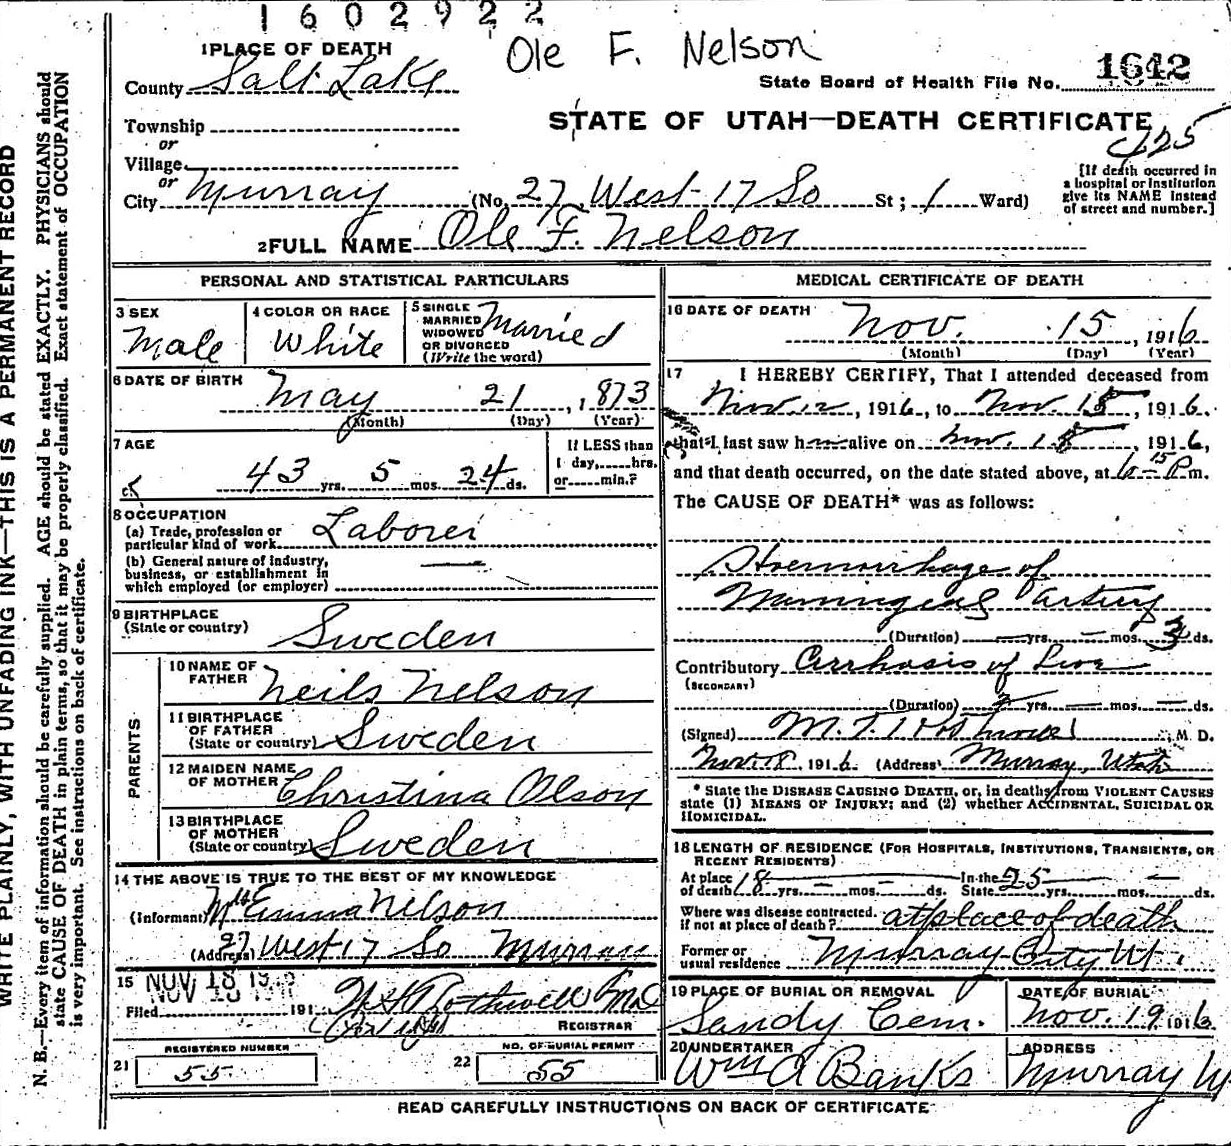 1602922
Ole F. Nelson
1 PLACE OF DEATH
County Salt Lake
State Board of Health File No. 1642
STATE OF UTAH—DEATH CERTIFICATE
Township
or
Village
or
City Murray (No. 27 West 17 So St; 1 Ward)
[If death occurred in
a hospital or institution
give its NAME instead
of street and number.]
2 FULL NAME Ole F. Nelson
WRITE PLAINLY, WITH UNFADING INK—THIS IS A PERMANENT RECORD
N. B.—Every item of information should be carefully supplied. AGE should be stated EXACTLY. PHYSICIANS should
state CAUSE OF DEATH in plain terms, so that it may be properly classified. Exact statement of OCCUPATION
is very important. See instructions on back of certificate.
PERSONAL AND STATISTICAL PARTICULARS
3 SEX
Male
4 COLOR OR RACE
White
5 SINGLE
MARRIED
WIDOWED
OR DIVORCED
(Write the word)
Married
6 DATE OF BIRTH
May 21, 1873
(Month) (Day) (Year)
7 AGE
43 yrs. 5 mos. 24 ds.
If LESS than
1 day,......hrs.
or......min.?
8 OCCUPATION
(a) Trade, profession or
particular kind of work Laborer
(b) General nature of industry,
business, or establishment in
which employed (or employer) —
9 BIRTHPLACE
(State or country)
Sweden
PARENTS
10 NAME OF
FATHER
Neils Nelson
11 BIRTHPLACE
OF FATHER
(State or country) Sweden
12 MAIDEN NAME
OF MOTHER
Christina Olson
13 BIRTHPLACE
OF MOTHER
(State or country) Sweden
14 THE ABOVE IS TRUE TO THE BEST OF MY KNOWLEDGE
(Informant) Mrs Emma Nelson
(Address) 27 West 17 So Murray
15 NOV 18 19
Filed 191
Rothwell
REGISTRAR
REGISTERED NUMBER
21 55
NO. OF BURIAL PERMIT
22 55
MEDICAL CERTIFICATE OF DEATH
16 DATE OF DEATH Nov. 15, 1916
(Month) (Day) (Year)
17 I HEREBY CERTIFY, That I attended deceased from
Nov 12, 1916, to Nov. 15, 1916,
that I last saw h alive on Nov. 15, 1916,
and that death occurred, on the date stated above, at 6 15 P m.
The CAUSE OF DEATH* was as follows:
Hoemorrhage of
Meningeal Artery
(Duration) — yrs. — mos. 3 ds.
Contributory Cirrhosis of Liver
(SECONDARY)
(Duration) 2 yrs. — mos. — ds.
(Signed) M. D.
Nov. 18, 1916 (Address) Murray, Utah
* State the DISEASE CAUSING DEATH, or, in deaths from VIOLENT CAUSES
state (1) MEANS OF INJURY; and (2) whether ACCIDENTAL, SUICIDAL OR
HOMICIDAL.
18 LENGTH OF RESIDENCE (FOR HOSPITALS, INSTITUTIONS, TRANSIENTS, OR
RECENT RESIDENTS)
At place
of death 18 yrs. — mos. — ds.
In the
State 25 yrs. — mos. — ds.
Where was disease contracted,
if not at place of death? at place of death
Former or
usual residence Murray City Ut.
19 PLACE OF BURIAL OR REMOVAL
Sandy Cem.
DATE OF BURIAL
Nov. 19 1916
20 UNDERTAKER
Wm A Banks
ADDRESS
Murray
READ CAREFULLY INSTRUCTIONS ON BACK OF CERTIFICATE